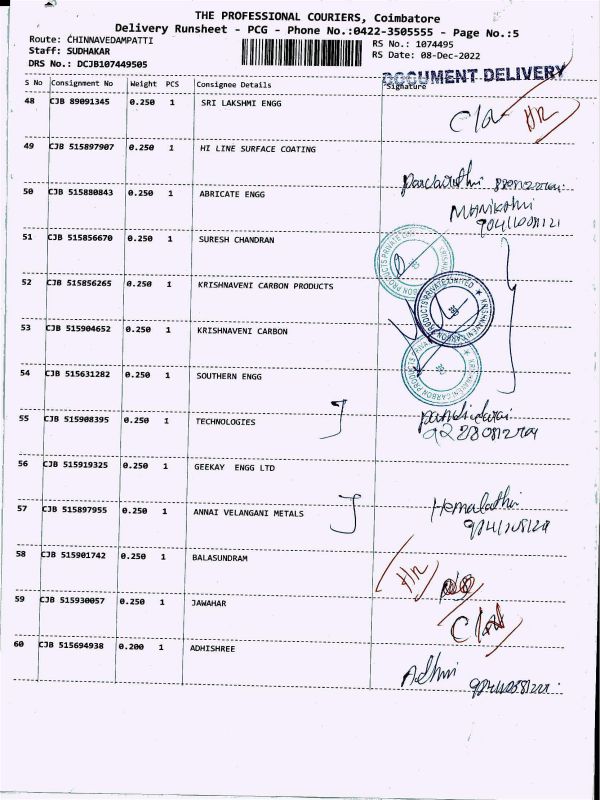 THE PROFESSIONAL COURIERS, Coimbatore
Delivery Runsheet - PCG - Phone No.:0422-3505555 - Page No.:5
Route: CHINNAVEDAMPATTI
RS No.: 1074495
Staff: SUDHAKAR
RS Date: 08-Dec-2022
DRS No.: DCJB107449505
DOCUMENT DELIVERY
S No Consignment No Weight PCS Consignee Details Signature
48 CJB 89091345 0.250 1 SRI LAKSHMI ENGG
49 CJB 515897907 0.250 1 HI LINE SURFACE COATING
50 CJB 515880843 0.250 1 ABRICATE ENGG
51 CJB 515856670 0.250 1 SURESH CHANDRAN
52 CJB 515856265 0.250 1 KRISHNAVENI CARBON PRODUCTS
53 CJB 515904652 0.250 1 KRISHNAVENI CARBON
54 CJB 515631282 0.250 1 SOUTHERN ENGG
55 CJB 515908395 0.250 1 TECHNOLOGIES
56 CJB 515919325 0.250 1 GEEKAY ENGG LTD
57 CJB 515897955 0.250 1 ANNAI VELANGANI METALS
Hemalatha
58 CJB 515901742 0.250 1 BALASUNDRAM
59 CJB 515930057 0.250 1 JAWAHAR
60 CJB 515694938 0.200 1 ADHISHREE